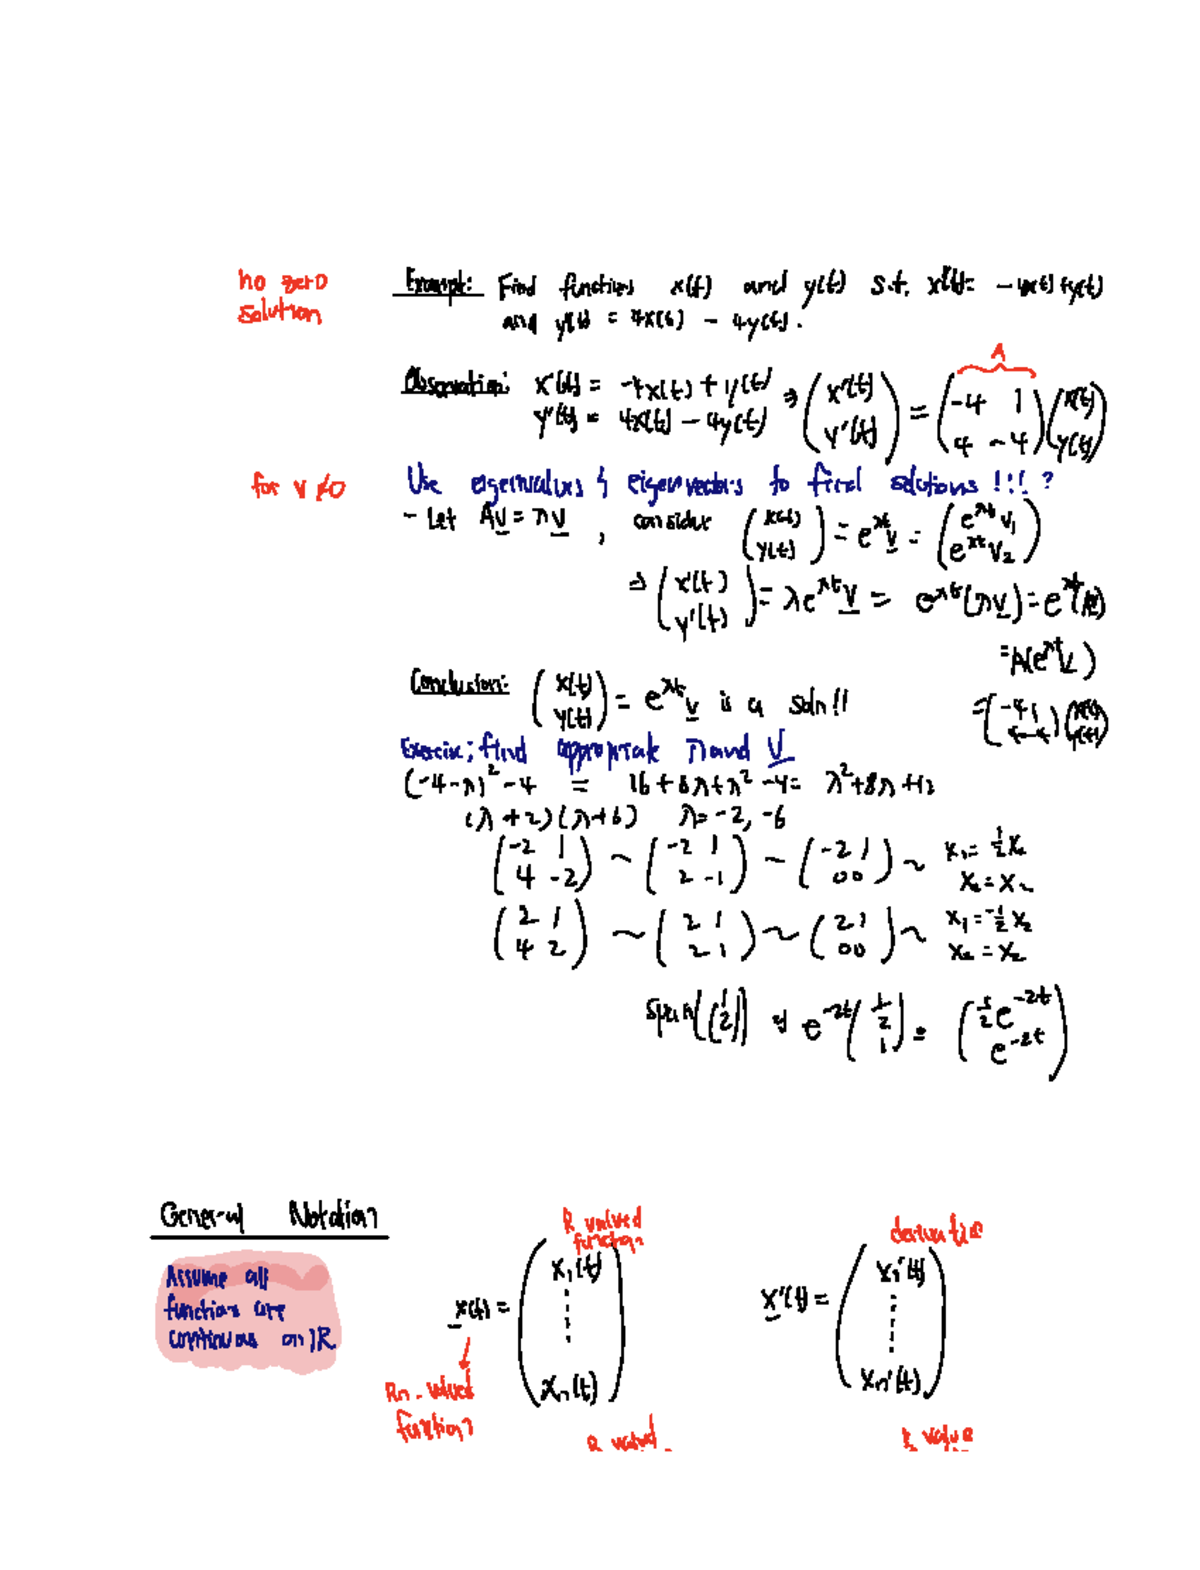 no zero
solution
Example: Find functions x(t) and y(t) s.t. x'(t)= -4x(t)+y(t)
and y'(t) = 4x(t) - 4y(t).
A
Observation: x'(t) = -4x(t) + y(t) ⇒ (x'(t) y'(t)) = (-4 1 4 -4)(x(t) y(t))
y'(t) = 4x(t) - 4y(t)
for v≠0
Use eigenvalues & eigenvectors to find solutions !!! ?
- Let Av = λv , consider (x(t) y(t)) = e^λt v = (e^λt v₁ e^λt v₂)
⇒ (x'(t) y'(t)) = λe^λt v = e^λt(λv) = e^λt(Av)
= A(e^λt v)
Conclusion: (x(t) y(t)) = e^λt v is a soln!!
= (-4 1 4 -4)(x(t) y(t))
Exercise; find appropriate λ and v
(-4-λ)² - 4 = 16 + 8λ + λ² - 4 = λ² + 8λ + 12
(λ + 2)(λ + 6) λ = -2, -6
(-2 1 4 -2) ~ (-2 1 2 -1) ~ (-2 1 0 0) ~ x₁ = ½x₂
x₂ = x₂
(2 1 4 2) ~ (2 1 2 1) ~ (2 1 0 0) ~ x₁ = -½x₂
x₂ = x₂
span((1 2)) ⇒ e^-2t(½ 1) = (½e^-2t e^-2t)
General Notation
Assume all
functions are
continuous on IR
R valued
function
x(t) = (x₁(t) ⋮ xn(t))
Rn-valued
function
R valued
derivative
x'(t) = (x₁'(t) ⋮ xn'(t))
R value